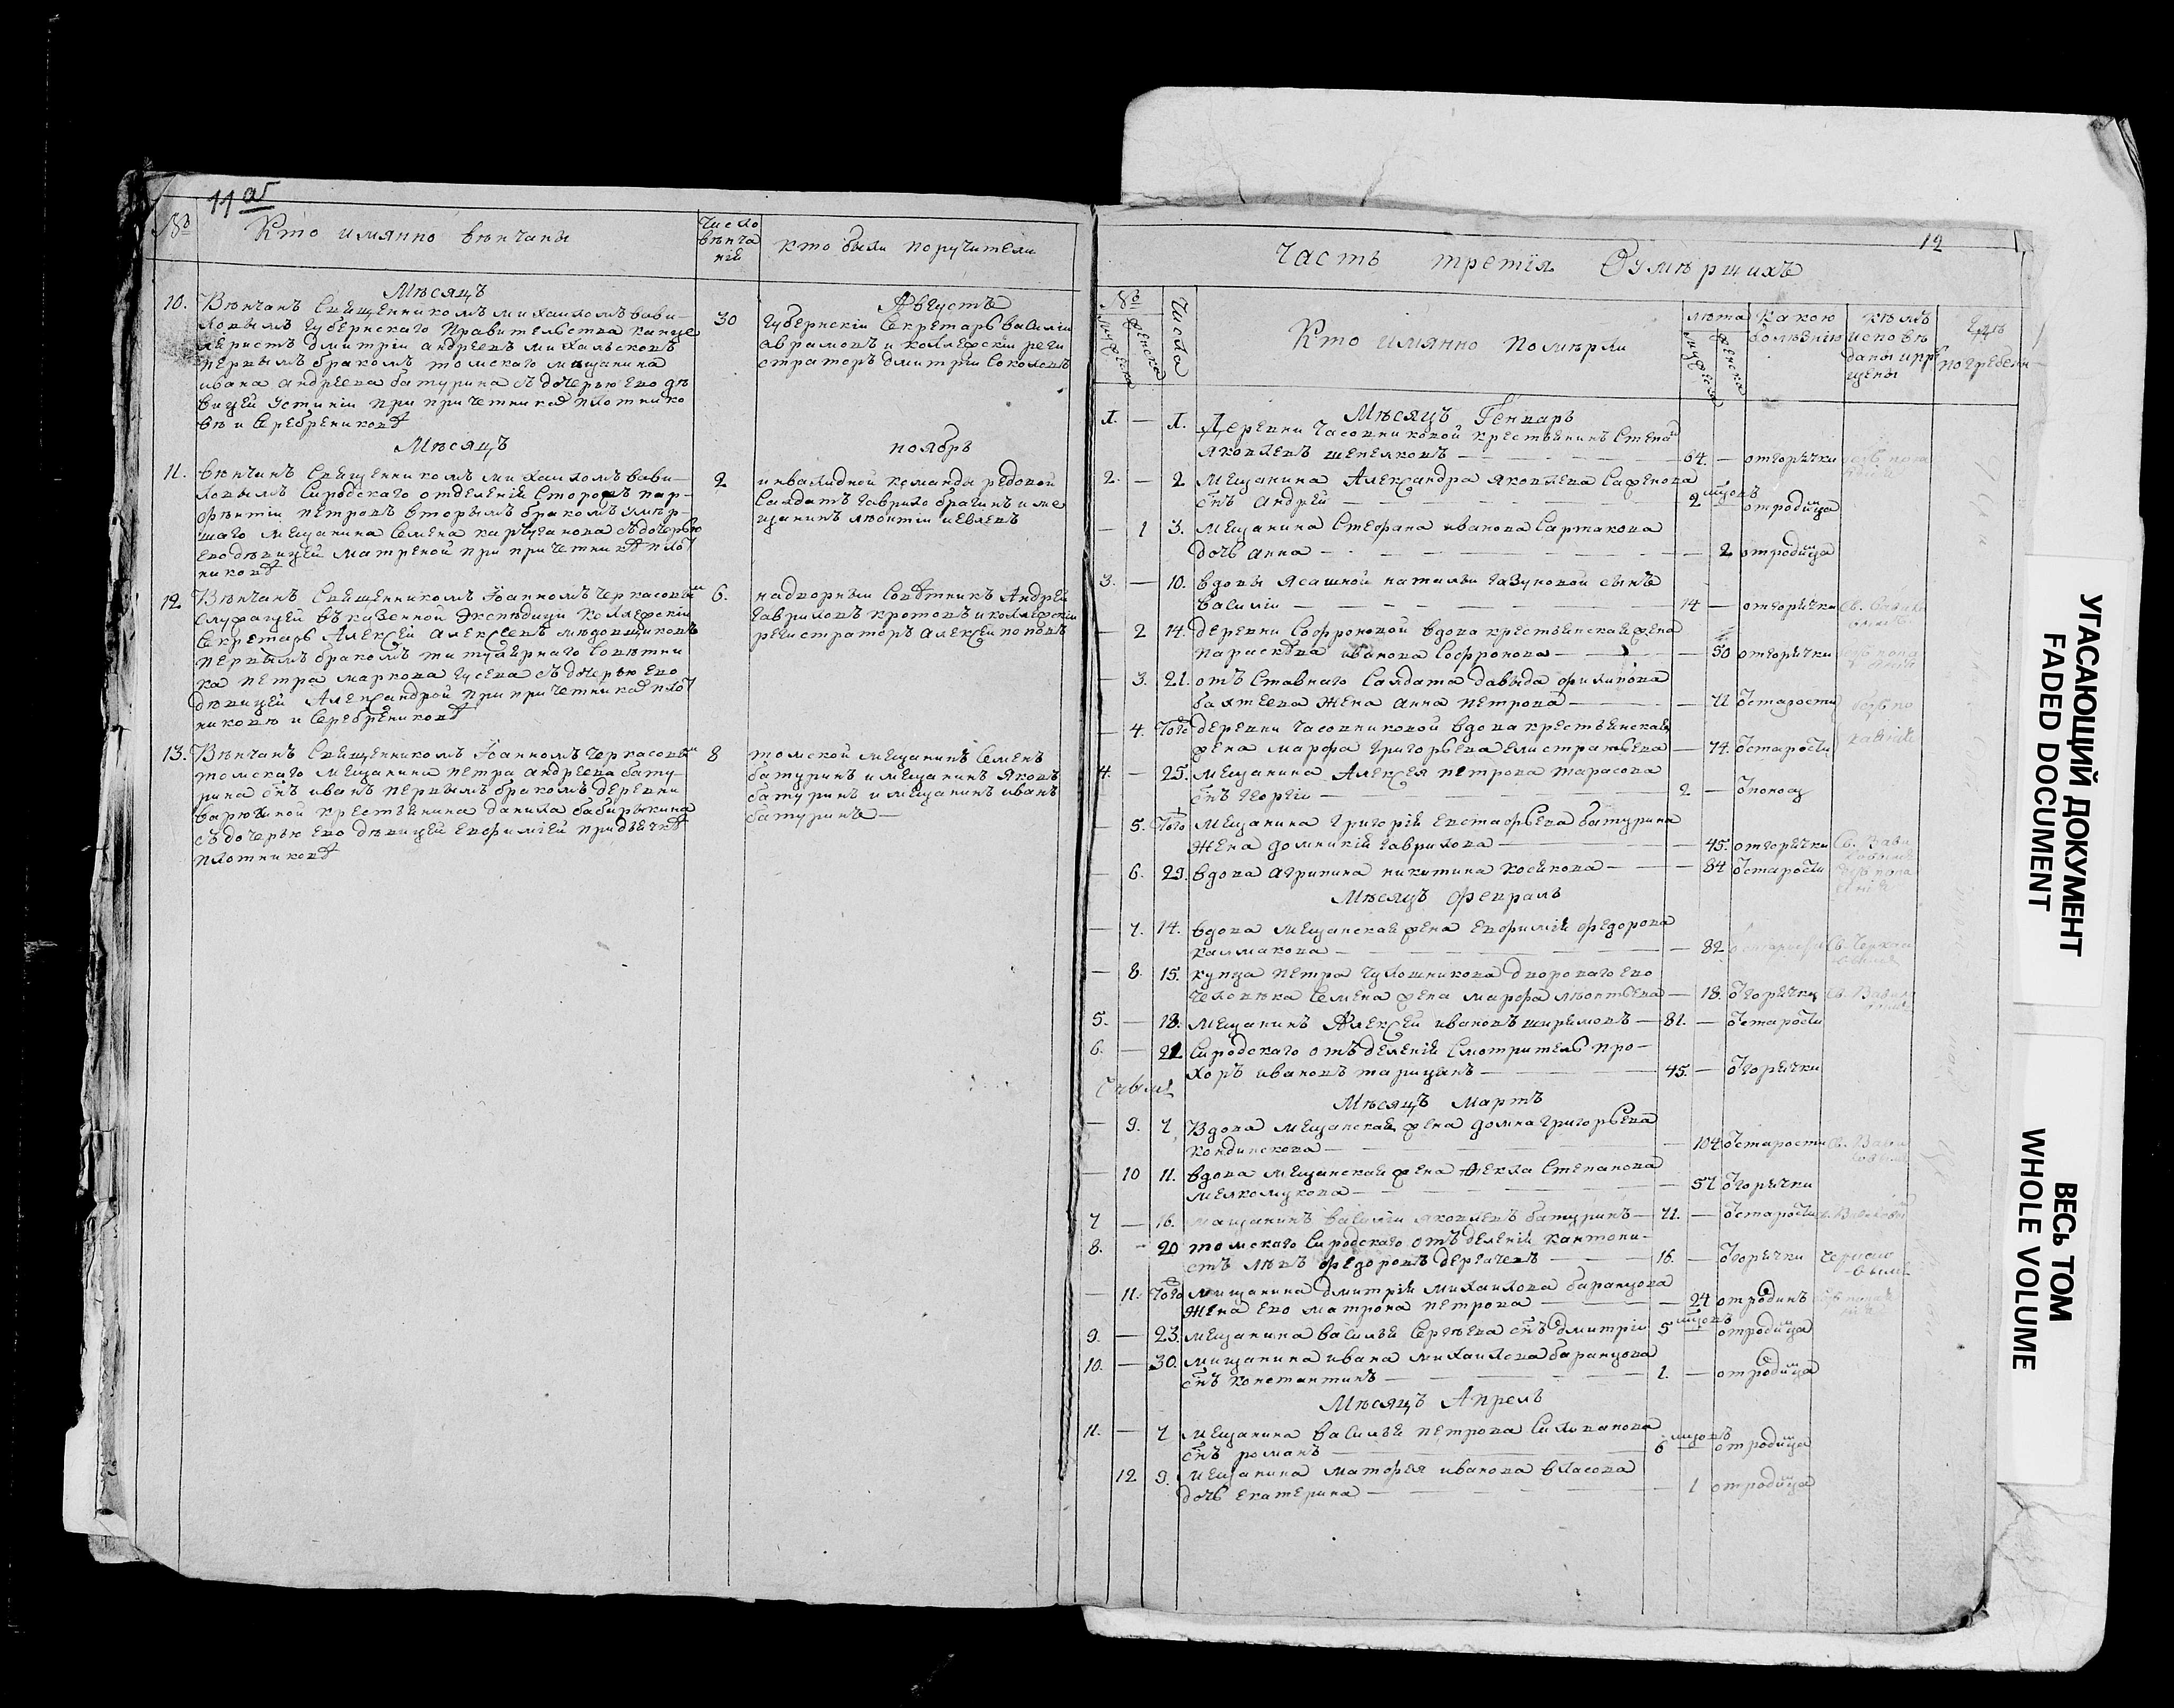 11 об
№
Кто имянно вѣнчаны
Число вѣнчаній
кто были поручители
Мѣсяцъ
Августъ
10. Вѣнчанъ Священникомъ михаиломъ вави-
ловымъ Губернскаго Правительства канце
ляристъ дмитріи андреевъ михальсковъ
первымъ бракомъ томскаго мещанина
ивана андреева батурина съ дочерью ево дѣ
вицей Устиніи при причетникаѣ плотнико
вѣ и Серебрениковѣ
30
Губернскіи Секретарь василіи
аврамовъ и коллежскіи реги
страторъ дмитріи Соколовъ
Мѣсяцъ
ноябрь
11. вѣнчанъ Священникомъ михаиломъ вави-
ловымъ Сиродскаго отделенія Сторожъ пар-
фентіи петровъ вторымъ бракомъ умер-
шаго мещанина Семена карчуганова съ дочерью
ево дѣвицей матреной при причетникѣ плот
никовѣ
2
инвалидной команды редовой
Салдатъ гаврило брагинъ и ме
щанинъ леонтіи иевлевъ
12 Вѣнчанъ Священникомъ Іоанномъ Черкасовым
служащей въ казенной Экспедиціи коллежскіи
Секретарь Алексей алексеевъ медовщиковъ
первымъ бракомъ титулярнаго Советни
ка петра маркова Гусева съ дочерью ево
дѣвицей Александрой при причетникаѣ плот
никовѣ и Серебрениковѣ
6.
надворныи Советникъ Андреи
гавриловъ кротовъ и коллежскіи
регистраторъ алексеи поповъ
13. Вѣнчанъ Священникомъ Іоанномъ Черкасовым
томскаго мещанина петра андреева бату-
рина снъ иванъ первымъ бракомъ деревни
варюхиной крестьянина данила бабарыкина
съ дочерью ево дѣвицей евфиміей при дьячкѣ
плотниковѣ
8
томской мещанинъ Семенъ
батуринъ и мещанинъ яковъ
батуринъ и мещанинъ иванъ
батуринъ —
12
Часть третія О умершихъ
№
мужеска
женска
Числа
Кто имянно померли
лѣта
мужеска
женска
Какою болѣзнію
кѣмъ исповѣданы и приобщены
Где погребены
Мѣсяцъ Генварь
1. — 1. Деревни Часовниковой крестьянинъ Степан
яковлевъ шепеляковъ — 64. — от горячки
2. — 2 мещанина Александра яковлева Сафенова
снъ андрей — 2 мцовъ — от родимца
— 1 3. мещанина Стефана иванова Сартакова
дочь анна — — 2 от родимца
3. — 10. вдовы ясашной наталіи газуковой сынъ
василіи — 14 — от горячки
— 2 14. деревни Софроновой вдова крестьянская жена
параскева иванова Софронова — — 50 от горячки
— 3. 21. отъ Ставнаго Салдата давыда филипова
балтеева жена анна петрова — — 71 от старости
— 4. Того деревни часовниковой вдова крестьянская
жена марфа григорьева елистратьева — 74. от старости
4. — 25. мещанина Алексея петрова тарасова
снъ георгіи — 2 — поносу
— 5. Того мещанина Григорій евстафьева батурина
жена домникій гаврилова — — 45. от горячки
— 6. 29. вдова агрипина никитина косикова — — 84 от старости
Мѣсяцъ февраль
— 7. 14. вдова мещанская жена евфимія федорова
калмакова — — 82
— 8. 15. купца петра Чулошникова двороваго ево
человека Семена жена марфа леонтьева — 18. от горячки
5. — 18. мещанинъ Алексеи ивановъ ширямовъ — 81. — от старости
6. — 21 Сиродскаго отъделенія Смотритель про-
хоръ ивановъ тарицынъ — 45. — от горячки
Мѣсяцъ мартъ
— 9. 7 Вдова мещанская жена домна григорьева
кондинскова — — 104 от старости
— 10 11. вдова мещанская жена Фекла Степанова
мелкомукова — — 57 от горячки
7 — 16. мещанинъ василіи яковлевъ батуринъ — 71. — от старости
8. — 20 томскаго Сиродскаго отъделенія кантони-
стъ левъ федоровъ дергачевъ — 16. — от горячки
— 11. Того мещанина дмитрій михаилова баранцова
жена ево матрона петрова — — 24 от родинъ
9. — 23. мещанина василья Сергеева снъ дмитріи 5 мцовъ — от родимца
10. — 30. мещанина ивана михаилова баранцова
снъ константинъ — 1. — от родимца
Мѣсяцъ Апрель
11. — 7 мещанина василья петрова Силиванова
снъ романъ — 6 мцовъ — от родимца
12 9. мещанина матфея иванова власова
дочь екатерина — — 1 от родимца
УГАСАЮЩИЙ ДОКУМЕНТ
FADED DOCUMENT
ВЕСЬ ТОМ
WHOLE VOLUME